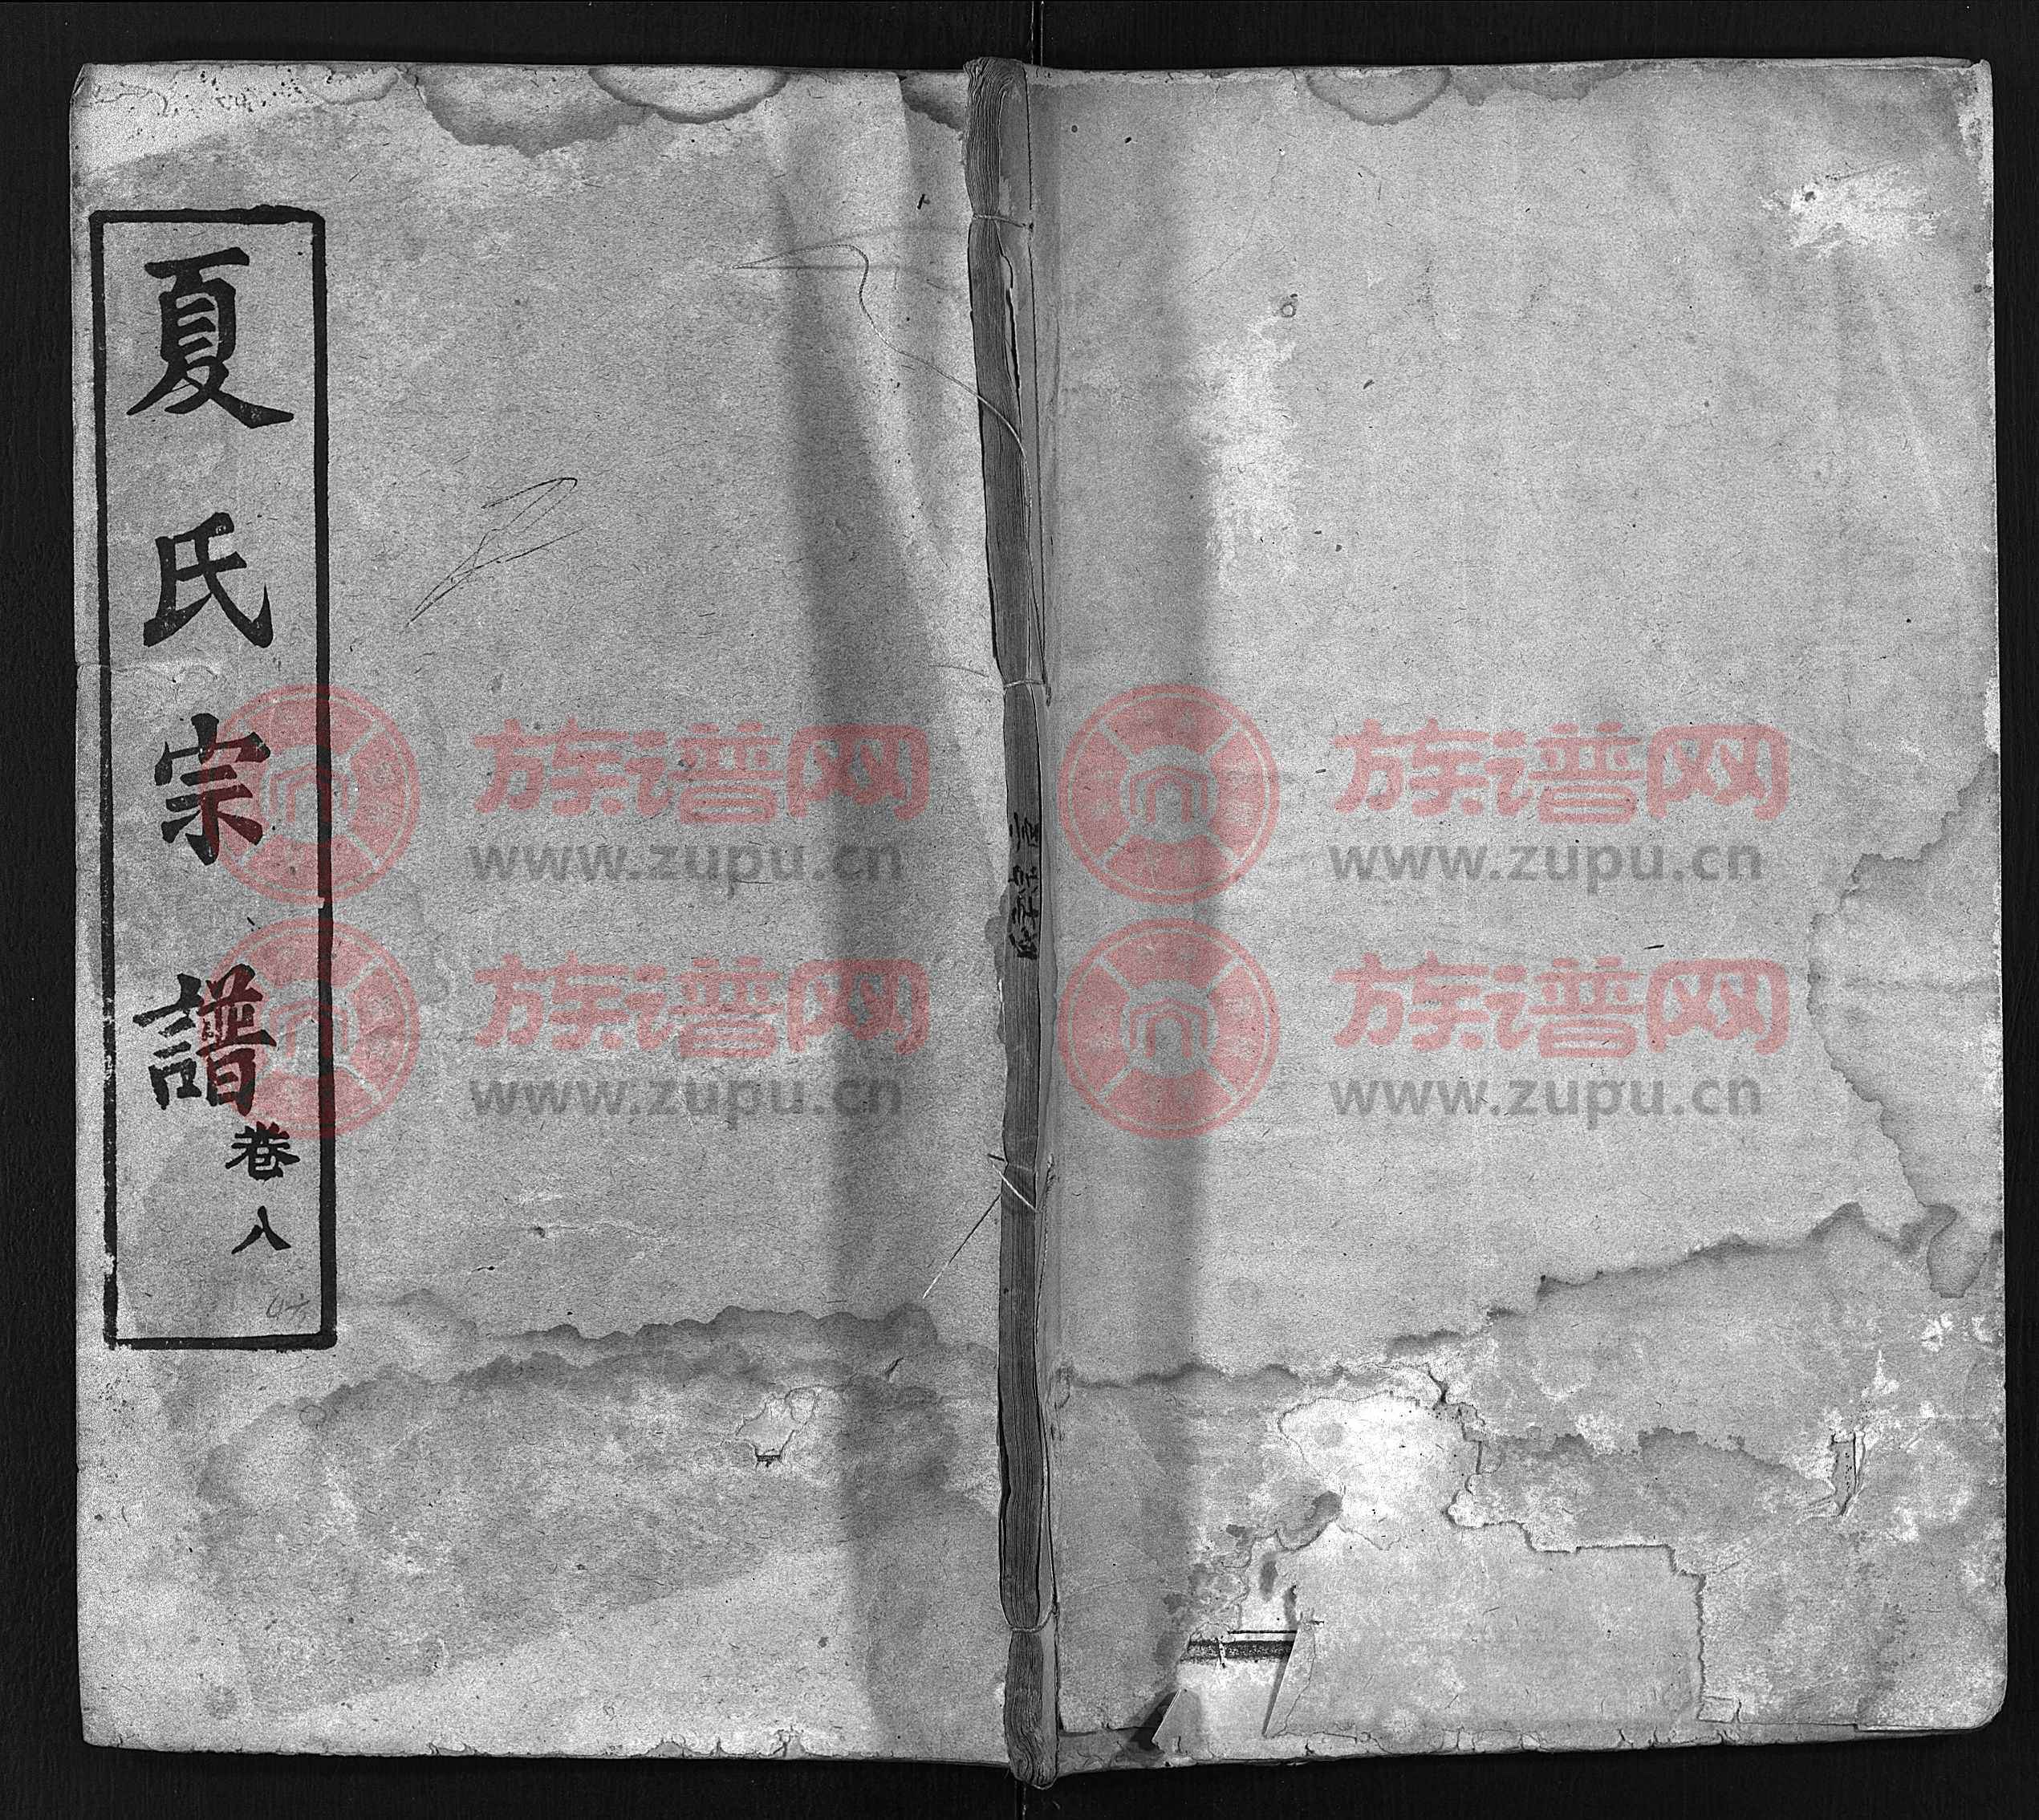 夏氏宗譜
卷八
族谱网
www.zupu.cn
族谱网
www.zupu.cn
族谱网
www.zupu.cn
族谱网
www.zupu.cn